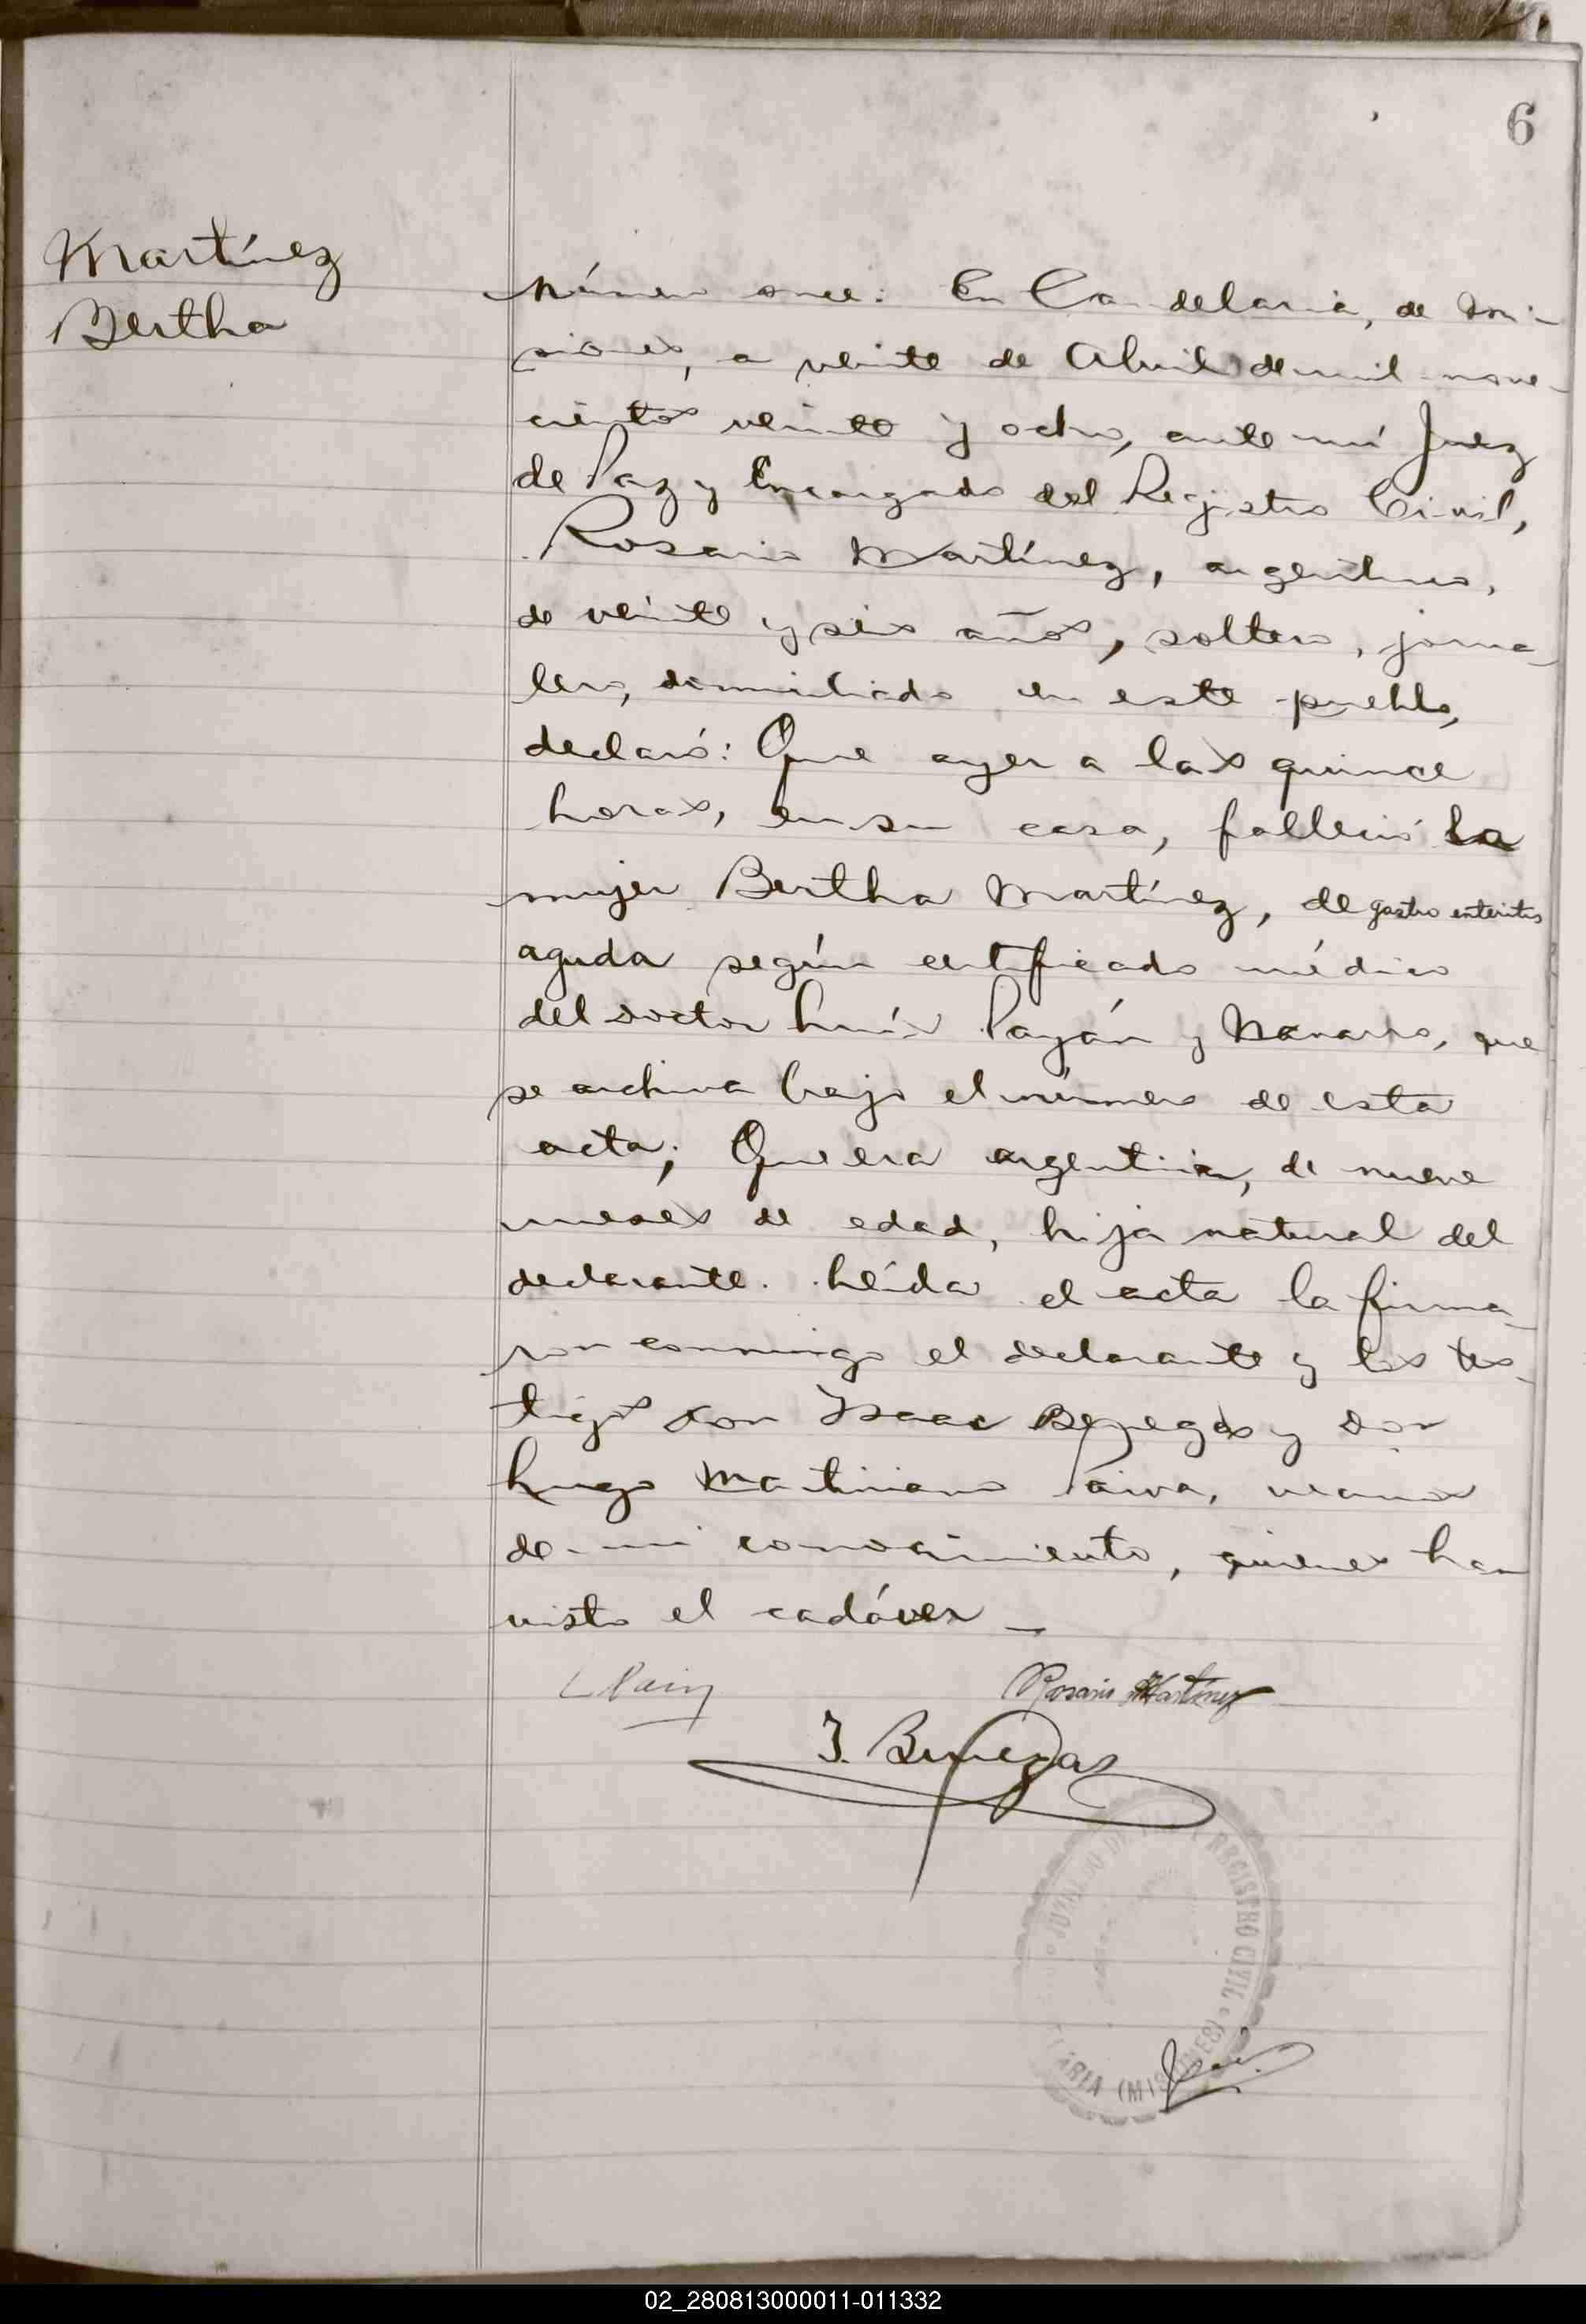 6
Martínez
Bertha
Número once: En Candelaria, de Mi-
siones, a veinte de Abril de mil nove-
cientos veinte y ocho, ante mí Juez
de Paz y Encargado del Registro Civil,
Rosario Martínez, argentino,
de veinte y seis años, soltero, jorna-
lero, domiciliado en este pueblo,
declaró: Que ayer a las quince
horas, en su casa, falleció la
mujer Bertha Martínez, de gastro enteritis
aguda según certificado médico
del doctor Luís Payán y Navarro, que
se archiva bajo el número de esta
acta; Que era argentina, de nueve
meses de edad, hija natural del
declarante. Leída el acta la firma-
ron conmigo el declarante y los tes-
tigos don Isaac Benegas y don
Hugo Martiniano Paiva, vecinos
de mi conocimiento, quienes han
visto el cadáver —
Rosario Martínez
I. Benegas
JUZGADO DE PAZ Y REGISTRO CIVIL
(MISIONES)
02_280813000011-011332